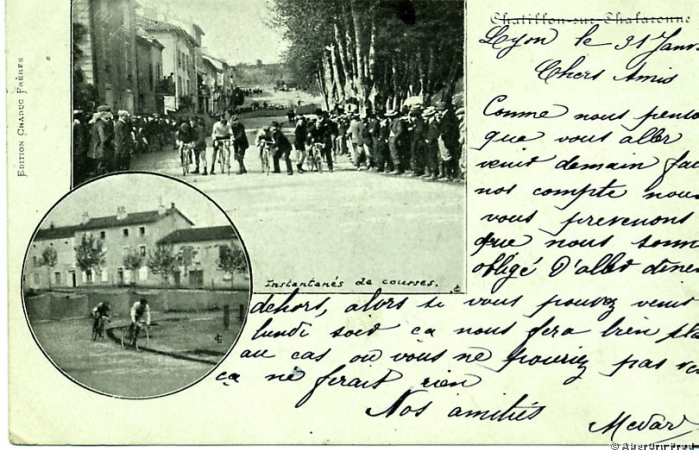 Chatillon-sur-Chalaronne
Lyon le 31 Janv
Chers Amis
Comme nous penso
que vous aller
venir demain fai
nos compte nous
vous prevenons
que nous somm
obligé D'aller dine
dehors, alors si vous pouvez venir
lundi soir ça nous fera bien pla
au cas ou vous ne pourriez pas ve
ça ne ferait rien
Nos amitiés
Instantanés de courses.
EDITION CHADUC FRÈRES